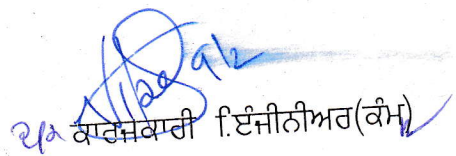 ਕਾਰਜਕਾਰੀ ਿ.ਇੰਜੀਨੀਅਰ(ਕੰਮ)